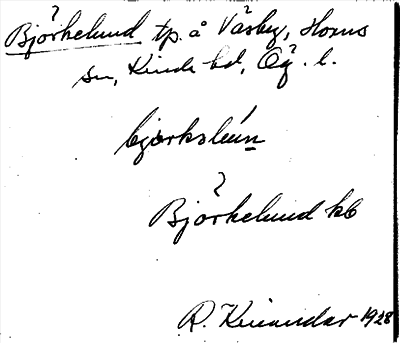 ?
Björkelund tp. å Väsby, Horns
sn, Kinda hd, Ög. l.
bjørksleún
?
Björkelund kb
R. Kinander 1928